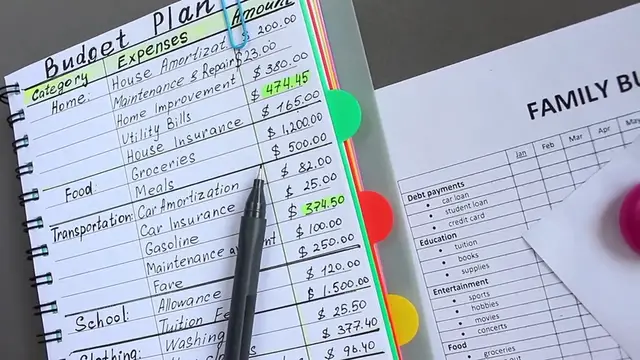 Budget Plan
Category Expenses Amount
Home: House Amortizat $ 200.00
Maintenance & Repair $23.00
Home Improvement $ 380.00
Utility Bills $ 474.45
House Insurance $ 165.00
Food: Groceries $ 1,200.00
Meals $ 500.00
Transportation: Car Amortization $ 82.00
Car Insurance $ 25.00
Gasoline $ 374.50
Maintenance $ 100.00
Fare $ 250.00
School: Allowance $ 120.00
Tuition Fe $ 1,500.00
Clothing: Washing $ 25.50
$ 377.40
$ 96.40
FAMILY BU
Jan Feb Mar Apr May
Debt payments
• car loan
• student loan
• credit card
Education
• tuition
• books
• supplies
Entertainment
• sports
• hobbies
• movies
• concerts
Food
• groceries